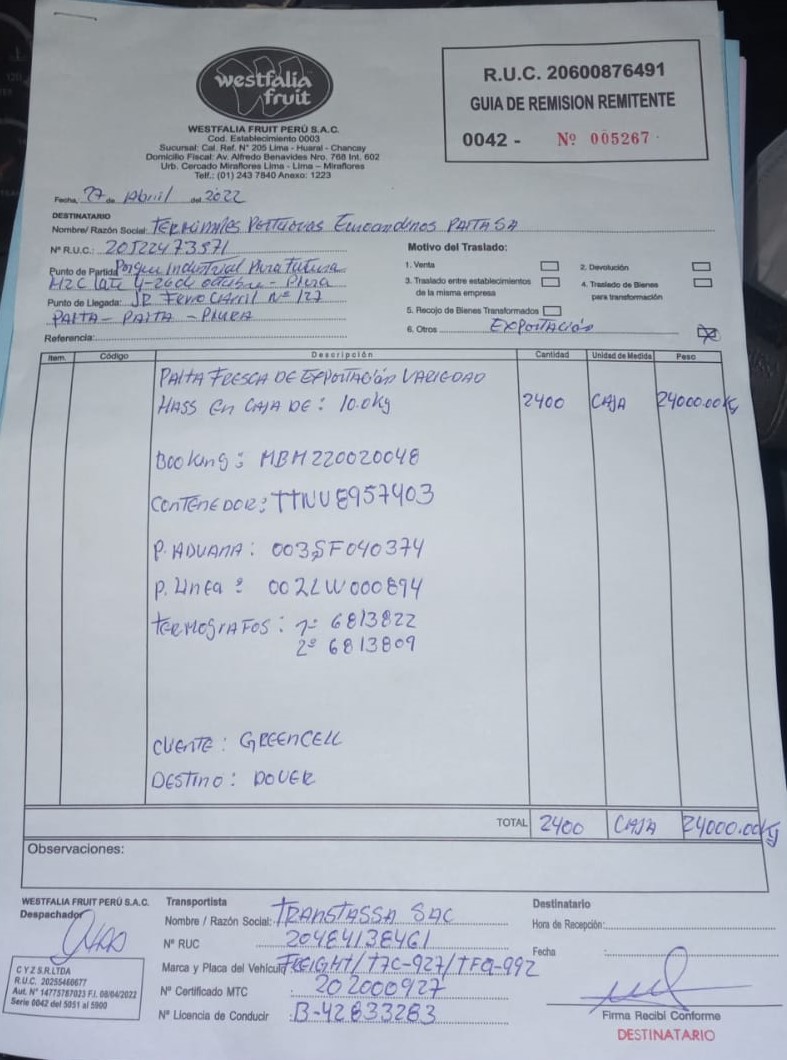 westfalia
fruit
WESTFALIA FRUIT PERÚ S.A.C.
Cod. Establecimiento 0003
Sucursal: Cal. Ref. N° 205 Lima - Huaral - Chancay
Domicilio Fiscal: Av. Alfredo Benavides Nro. 768 Int. 602
Urb. Cercado Miraflores Lima - Lima - Miraflores
Telf.: (01) 243 7840 Anexo: 1223
R.U.C. 20600876491
GUIA DE REMISION REMITENTE
0042 - Nº 005267
Fecha, 27 de Abril del 2022
DESTINATARIO
Nombre/ Razón Social: TERMINALES PORTUARIOS Euroandinos PAITA SA
Nº R.U.C.: 20522473571
Punto de Partida: Parque Industrial Piura Futura
MZ C lote 4-26 de octubre - Piura
Punto de Llegada: JR Ferro Carril Nº 127
PAITA - PAITA - PIURA
Referencia:
Motivo del Traslado:
1. Venta
2. Devolución
3. Traslado entre establecimientos
de la misma empresa
4. Traslado de Bienes
para transformación
5. Recojo de Bienes Transformados
6. Otros EXPORTACIÓN X
Item. Código Descripción Cantidad Unidad de Medida Peso
PALTA FRESCA DE EXPORTACIÓN VARIEDAD
HASS En CAJA DE: 10.0kg 2400 CAJA 24000.00Kg
Booking: MBM220020048
CONTENEDOR: TTNU8957403
P. ADUANA: 003SF040374
P. Linea: 002LW000894
TERMOGRAFOS: 1º 6813822
2º 6813809
CLIENTE: GREENCELL
DESTINO: DOVER
TOTAL 2400 CAJA 24000.00Kg
Observaciones:
WESTFALIA FRUIT PERÚ S.A.C.
Despachador
C Y Z S.R.LTDA
R.U.C. 20255460677
Aut. N° 14775787023 F.I. 08/04/2022
Serie 0042 del 5051 al 5900
Transportista
Nombre / Razón Social: TRANSTASSA SAC
Nº RUC 20484138461
Marca y Placa del Vehículo FREIGHT/T7C-927/TFQ-992
Nº Certificado MTC 202000927
Nº Licencia de Conducir B-42833283
Destinatario
Hora de Recepción:
Fecha
Firma Recibí Conforme
DESTINATARIO